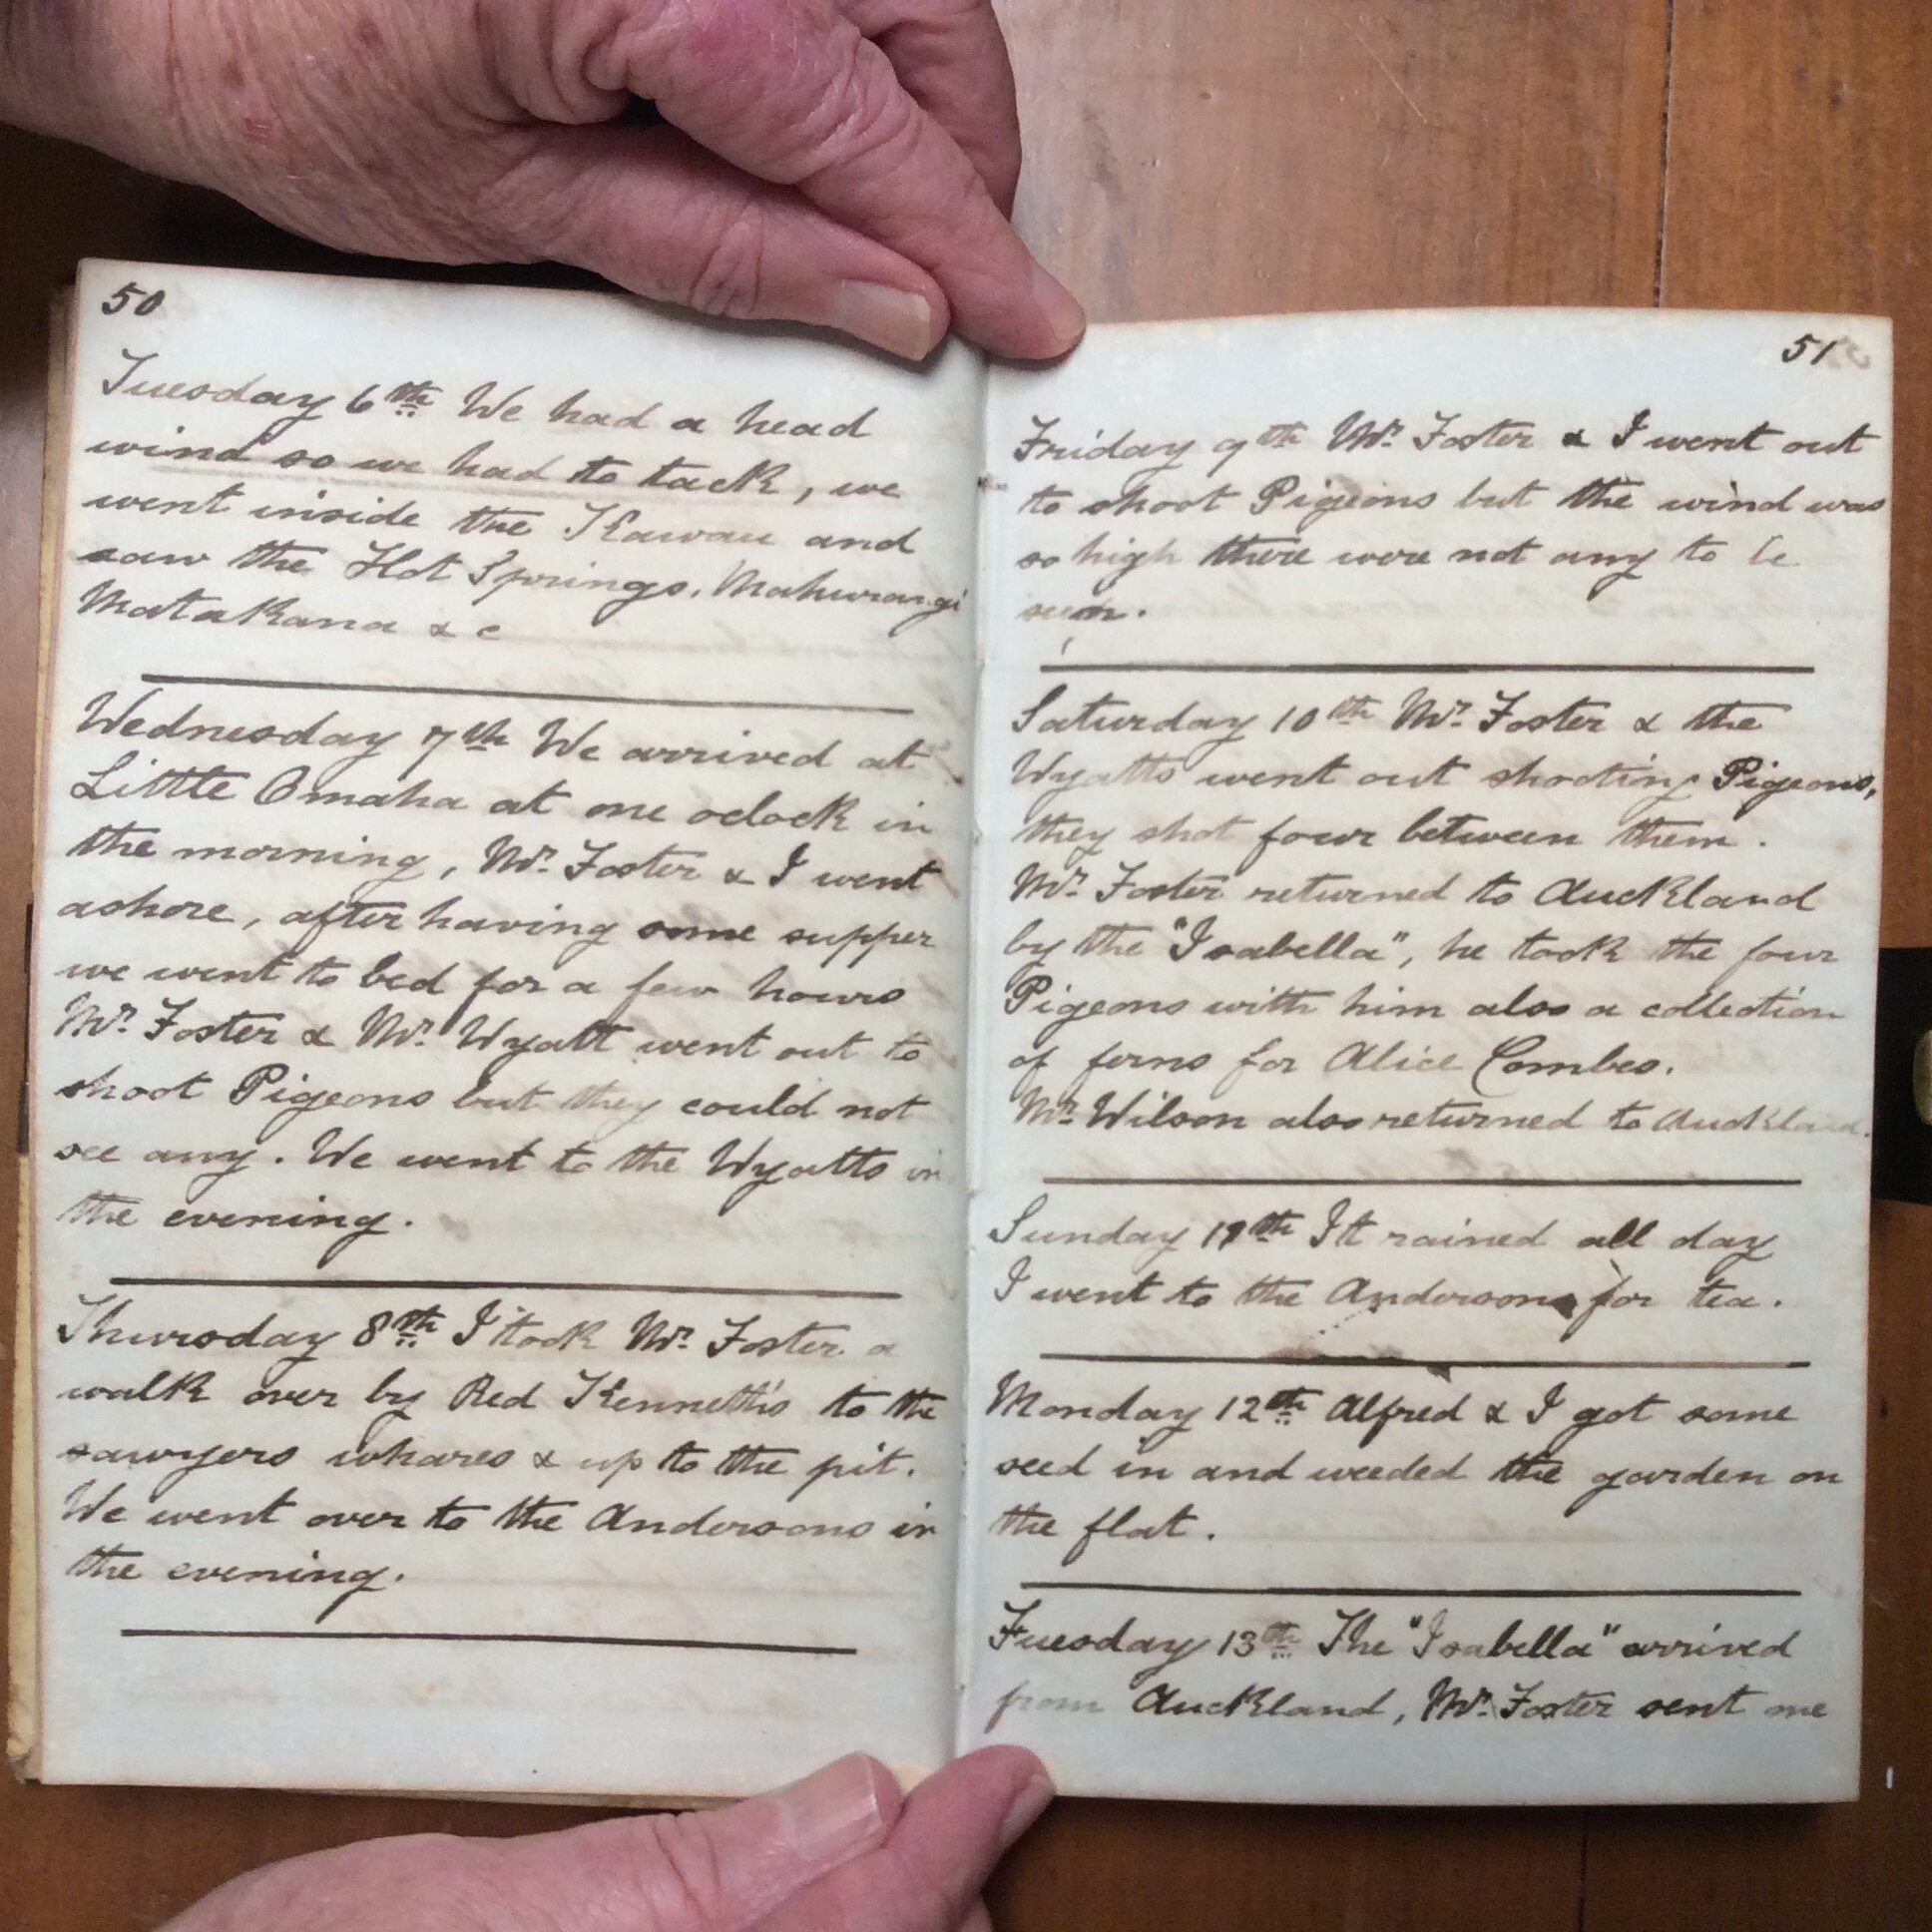 50
Tuesday 6th We had a head
wind so we had to tack, we
went inside the Kawau and
saw the Hot Springs, Mahurangi
Matakana & c
Wednesday 7th We arrived at
Little Omaha at one oclock in
the morning, Mr. Foster & I went
ashore, after having some supper
we went to bed for a few hours
Mr. Foster & Mr. Wyatt went out to
shoot Pigeons but they could not
see any. We went to the Wyatts in
the evening.
Thursday 8th I took Mr. Foster a
walk over by Red Kenneth's to the
sawyers whares & up to the pit.
We went over to the Andersons in
the evening.
51
Friday 9th Mr. Foster & I went out
to shoot Pigeons but the wind was
so high there were not any to be
seen.
Saturday 10th Mr. Foster & the
Wyatts went out shooting Pigeons,
they shot four between them.
Mr. Foster returned to Auckland
by the "Isabella", he took the four
Pigeons with him also a collection
of ferns for Alice Combes.
Mr. Wilson also returned to Auckland.
Sunday 11th It rained all day
I went to the Andersons for tea.
Monday 12th Alfred & I got some
seed in and weeded the garden on
the flat.
Tuesday 13th The "Isabella" arrived
from Auckland, Mr. Foster sent me